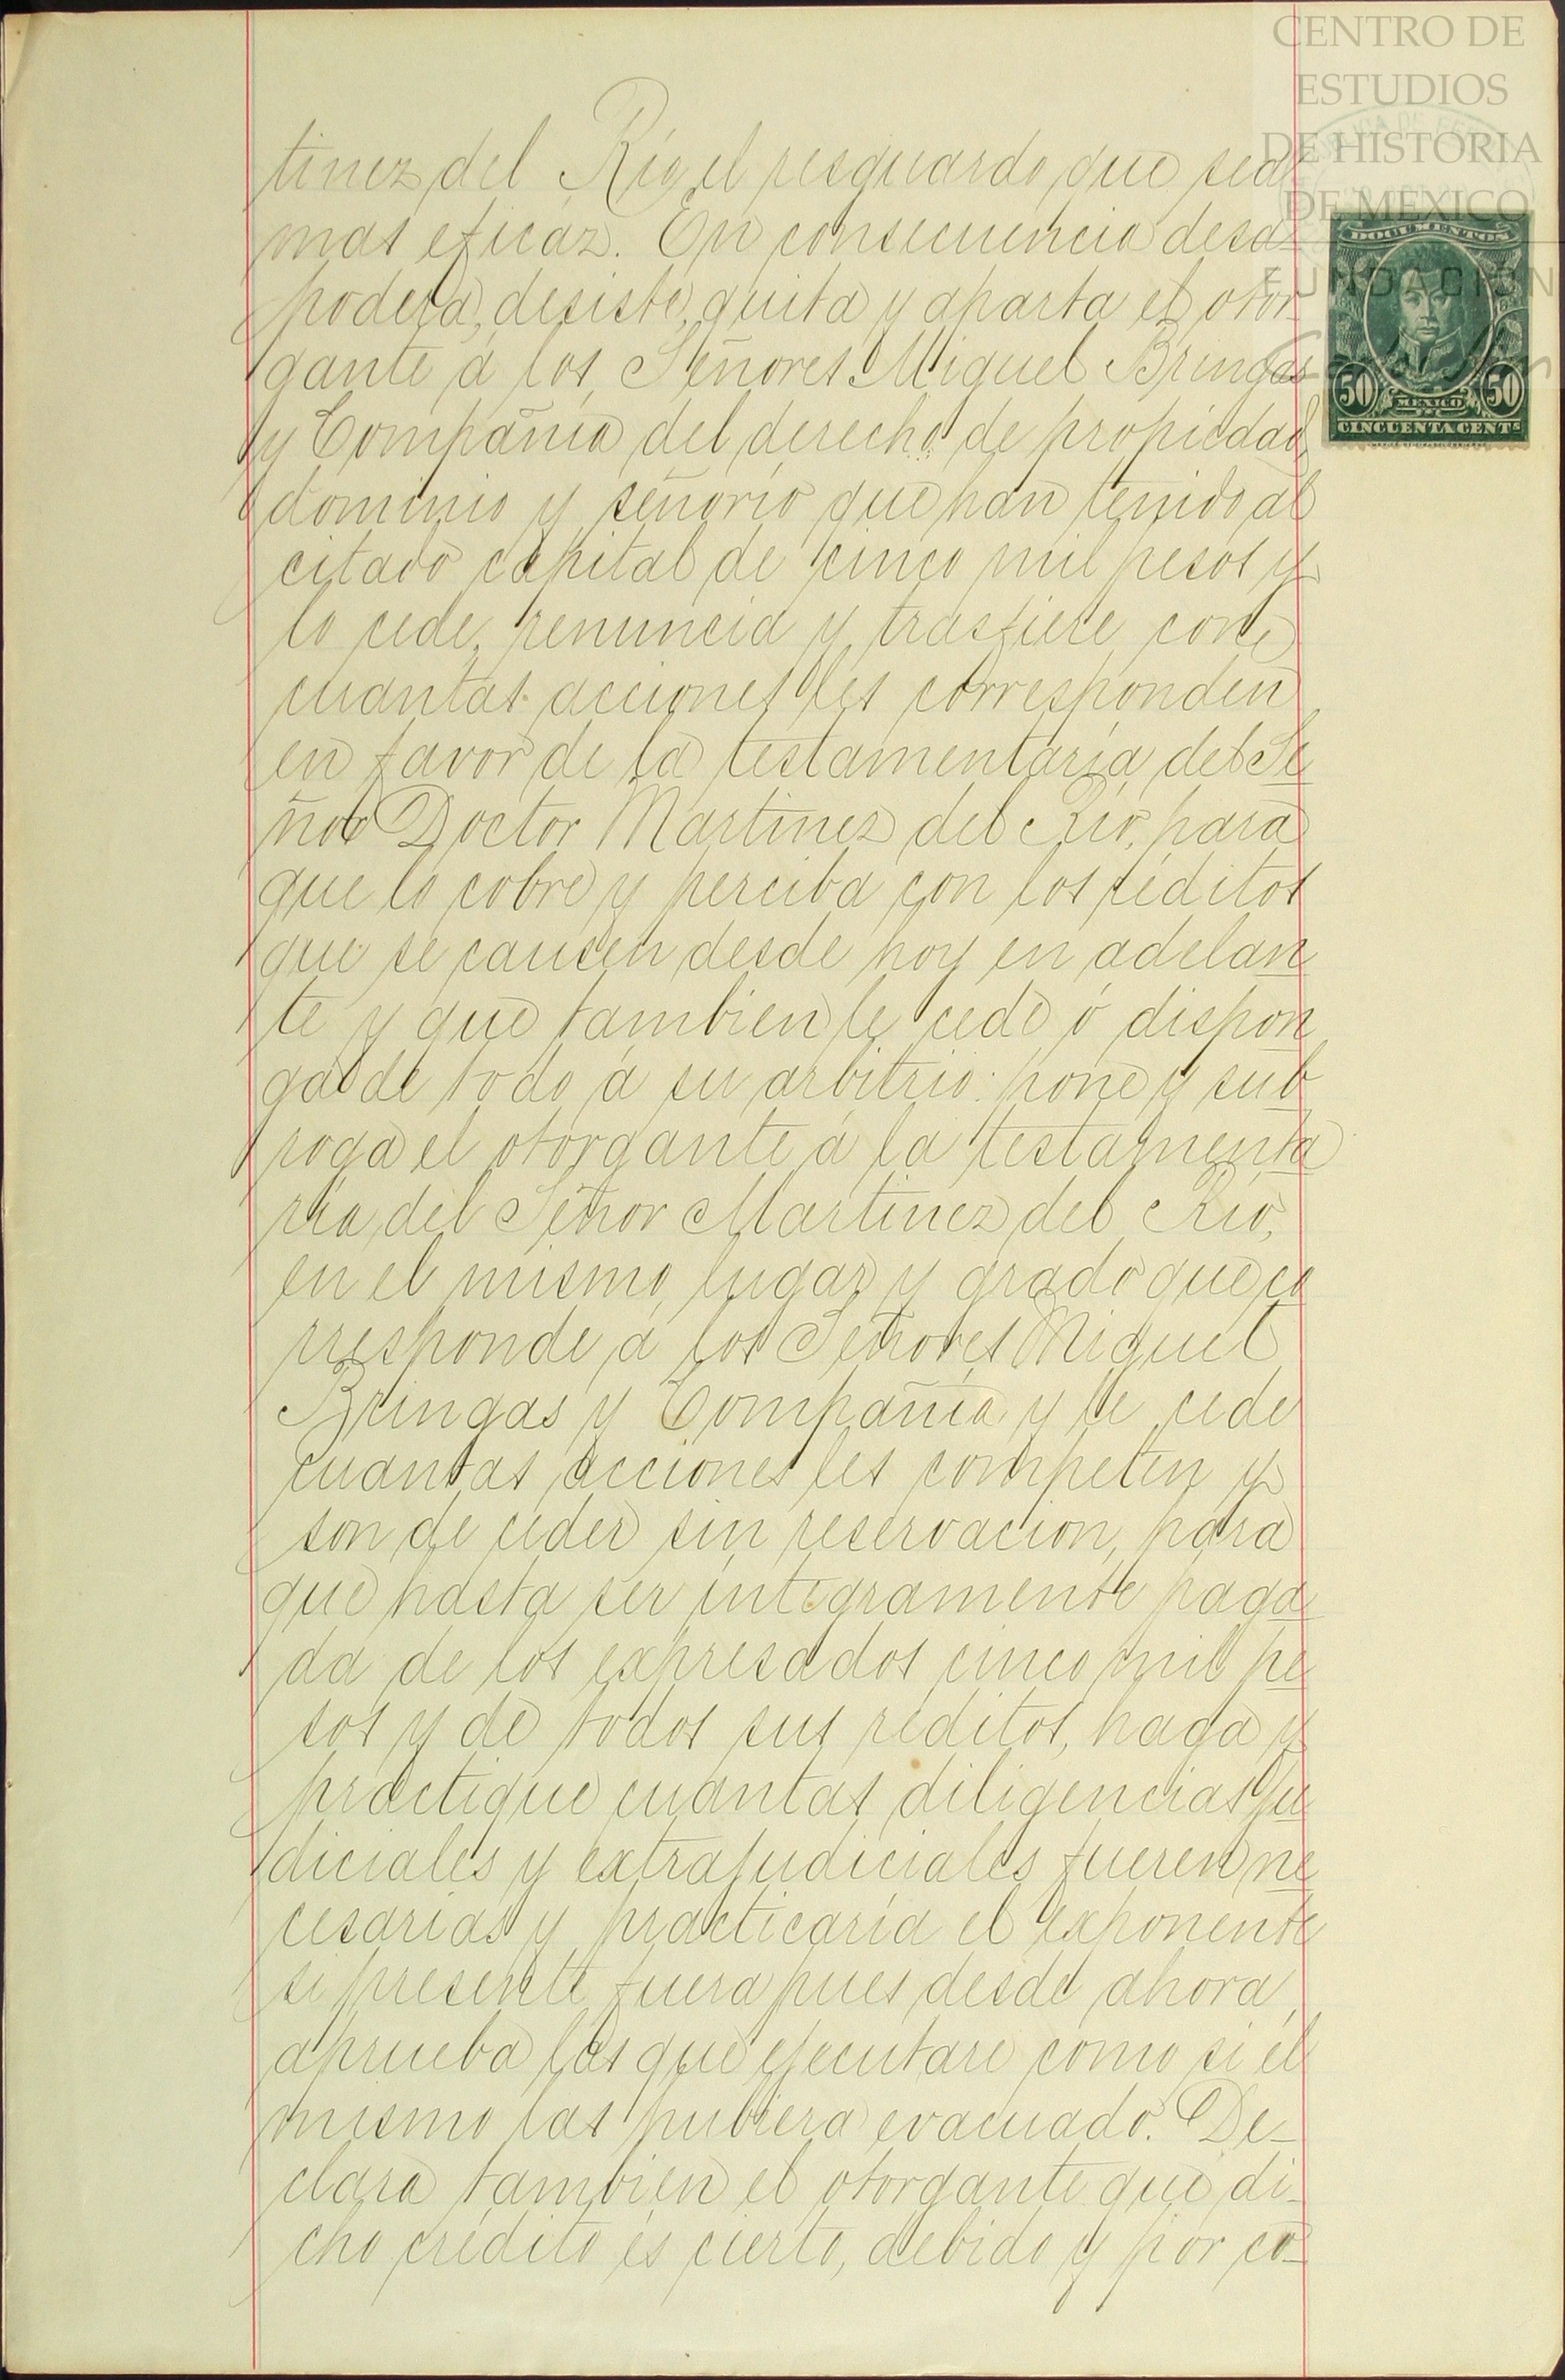 CENTRO DE
ESTUDIOS
DE HISTORIA
DE MEXICO
FUNDACION
DOCUMENTOS
50 MEXICO 50
CINCUENTA CENTS
tinez del Rio, el resguardo que sea
mas eficaz. En consecuencia desa-
podera, desiste, quita y aparta el otor-
gante á los Señores Miguel Bringas
y Compañia del derecho de propiedad
dominio y señorío que han tenido al
citado capital de cinco mil pesos y
lo cede, renuncia y trasfiere con
cuantas acciones les corresponden
en favor de la testamentaría del Se
ñor Doctor Martinez del Rio, para
que lo cobre y perciba con los réditos
que se causen desde hoy en adelan
te y que tambien le cede ó dispon
ga de todo á su arbitrio: pone y sub
roga el otorgante á la testamenta
ria del Señor Martinez del Rio,
en el mismo lugar y grado que co
rresponde á los Señores Miguel
Bringas y Compañia y le cede
cuantas acciones les competen y
son de ceder sin reservacion, para
que hasta ser integramente paga
da de los expresados cinco mil pe
sos y de todos sus réditos, haga y
practique cuantas diligencias ju
diciales y extrajudiciales fueren ne
cesarias y practicaría el exponente
si presente fuera pues desde ahora
aprueba las que ejecutare como si él
mismo las hubiera evacuado. De-
clara tambien el otorgante que di-
cho crédito es cierto, debido y por co-